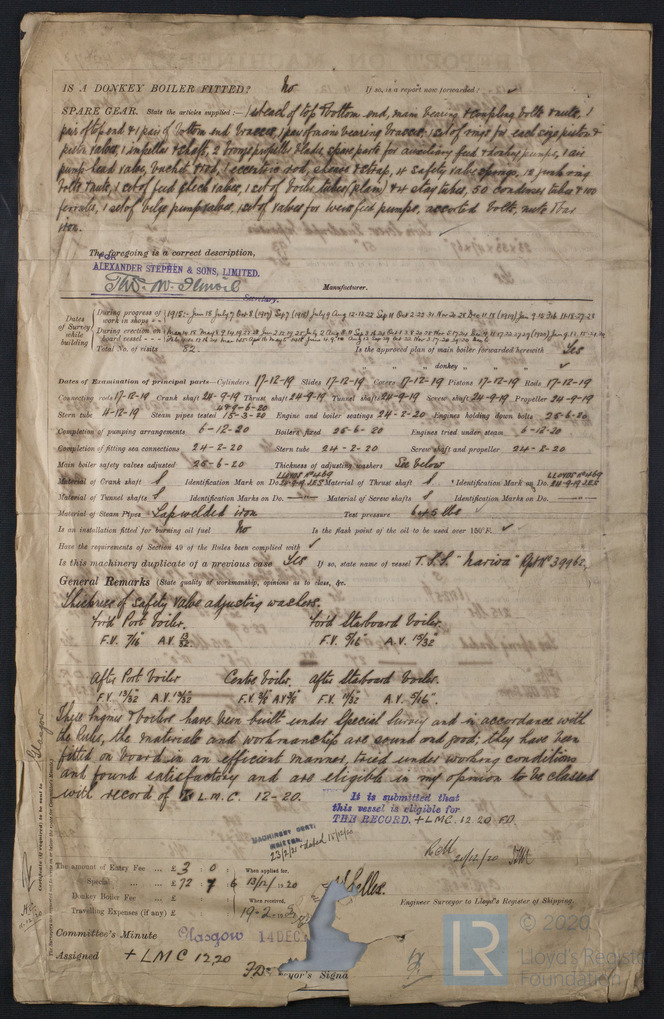 IS A DONKEY BOILER FITTED? No If so, is a report now forwarded? ✓
SPARE GEAR. State the articles supplied:— 1 set each of top & bottom end, main bearing & coupling bolts & nuts, 1
pair of top end & 1 pair of bottom end brasses, 1 pair of main bearing brasses, 1 set of rings for each size piston &
piston valve, 1 impeller & shaft, 2 bronze propeller blades, spare parts for auxiliary feed & donkey pumps, 1 air
pump head valve, bucket & rod, 1 eccentric rod, sheave & strap, 4 safety valve springs, 12 junk ring
bolts & nuts, 1 set of feed check valves, 1 set of boiler tubes (plain) & 4 stay tubes, 50 condenser tubes & 100
ferrules, 1 set of bilge pump valves, 1 set of valves for weirs feed pumps, assorted bolts, nuts & bar
iron.
The foregoing is a correct description,
FOR
ALEXANDER STEPHEN & SONS, LIMITED.
Manufacturer.
Secretary.
Dates of Survey while building
During progress of work in shops - -
During erection on board vessel - - -
Total No. of visits 82. Is the approved plan of main boiler forwarded herewith Yes
" " " donkey " " " ✓
Dates of Examination of principal parts—Cylinders 17-12-19 Slides 17-12-19 Covers 17-12-19 Pistons 17-12-19 Rods 17-12-19
Connecting rods 17-12-19 Crank shaft 24-9-19 Thrust shaft 24-9-19 Tunnel shafts 24-9-19 Screw shaft 24-9-19 Propeller 24-9-19
Stern tube 4-12-19 Steam pipes tested 15-3-20 Engine and boiler seatings 24-2-20 Engines holding down bolts 25-6-20
Completion of pumping arrangements 6-12-20 Boilers fixed 25-6-20 Engines tried under steam 6-12-20
Completion of fitting sea connections 24-2-20 Stern tube 24-2-20 Screw shaft and propeller 24-2-20
Main boiler safety valves adjusted 25-6-20 Thickness of adjusting washers See below
Material of Crank shaft S Identification Mark on Do. LLOYDS No 469 24-9-19 J.E.S Material of Thrust shaft S Identification Mark on Do. LLOYDS No 469 24-9-19 J.E.S.
Material of Tunnel shafts S Identification Marks on Do. — " — Material of Screw shafts S Identification Marks on Do. — " —
Material of Steam Pipes Lap welded iron Test pressure 645 lbs ✓
Is an installation fitted for burning oil fuel No Is the flash point of the oil to be used over 150°F. ✓
Have the requirements of Section 49 of the Rules been complied with ✓
Is this machinery duplicate of a previous case Yes If so, state name of vessel T.S.S. "Nariva" Rpt No 39962.
General Remarks (State quality of workmanship, opinions as to class, &c.
Thickness of safety valve adjusting washers.
Ford Port Boiler. Ford Starboard Boiler.
F.V. 7/16" A.V. 13/32 F.V. 5/16" A.V. 13/32"
After Port Boiler Centre Boiler. After Starboard Boiler.
F.V. 13/32 A.V. 13/32" F.V. 3/8 A.V. 3/8" F.V. 11/32 A.V. 5/16".
These Engines & boilers have been built under Special Survey and in accordance with
the Rules, the materials and workmanship are sound and good; they have been
fitted on board in an efficient manner, tried under working conditions
and found satisfactory and are eligible in my opinion to be classed
with record of + L.M.C. 12-20.
It is submitted that
this vessel is eligible for
THE RECORD. + LMC. 12.20. F.D.
MACHINERY CERT.
WRITTEN.
23/2/21 dated 15/12/20
20/12/20
The amount of Entry Fee ... £ 3 : 0 : When applied for.
Special ... £ 72 : 7 : 6 13/12/1920
Donkey Boiler Fee ... £ When received,
Travelling Expenses (if any) £ 19-2-
Engineer Surveyor to Lloyd's Register of Shipping.
Committee's Minute Glasgow 14 DEC
Assigned + LMC 12,20
F.D.
yor's Signa
Glasgow
© 2020
LR
Lloyd's Register
Foundation